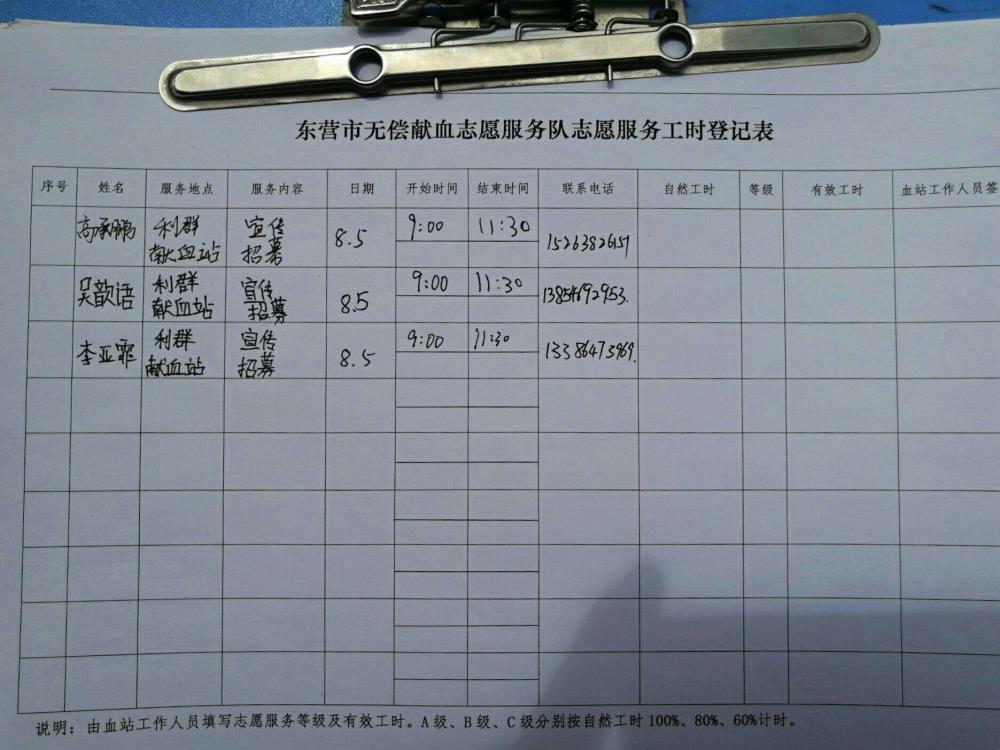 东营市无偿献血志愿服务队志愿服务工时登记表
序号 姓名 服务地点 服务内容 日期 开始时间 结束时间 联系电话 自然工时 等级 有效工时 血站工作人员签
高承鹏 利群 宣传 8.5 9:00 11:30
献血站 招募
吴歆语 利群 宣传 8.5 9:00 11:30 13854692953
献血站 招募
李亚霏 利群 宣传 8.5 9:00 11:30 13386473969
献血站 招募
说明：由血站工作人员填写志愿服务等级及有效工时。A级、B级、C级分别按自然工时100%、80%、60%计时。